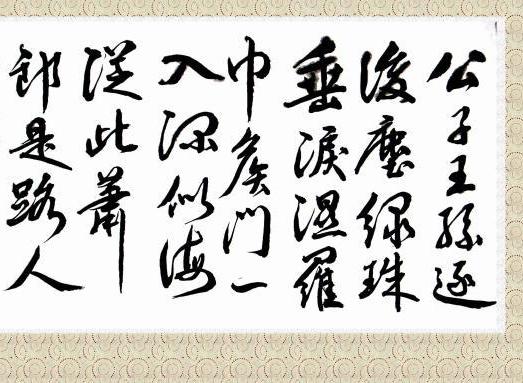 公子王孫逐
後塵緑珠
垂淚濕羅
巾矦門一
入深似海
從此蕭
郎是路人